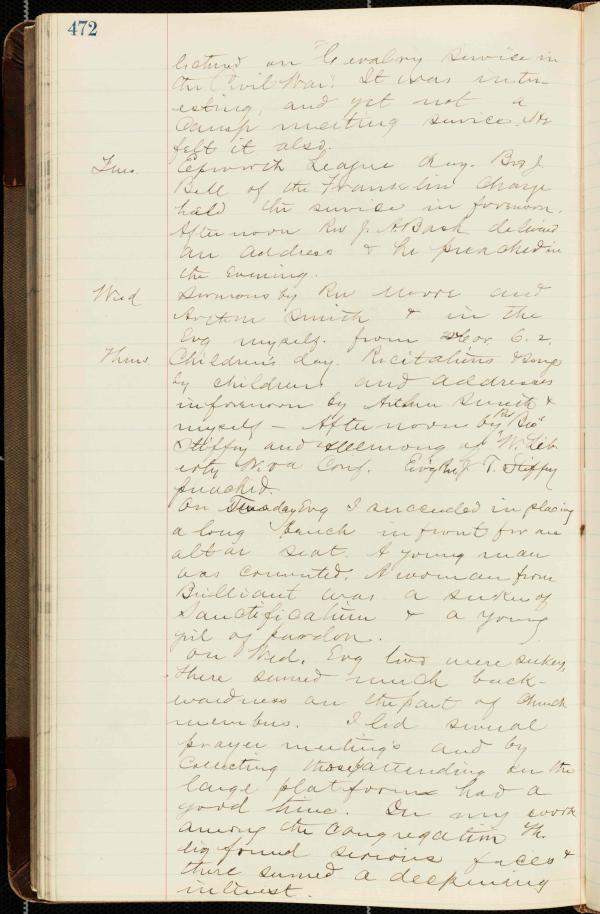 472
lectured on "Cavalry Service in
the Civil War." It was inter-
esting, and yet not a
Camp meeting service. He
felt it also.
Tues. Epworth League day. Bro J.
Bell of the Franklin Charge
held the service in forenoon.
Afternoon Rev J. A. Bash delivered
an address & he preached in
the evening.
Wed Sermons by Rev Moore and
Arthur Smith & in the
Evg myself. from 2 Cor 6.2.
Thurs. Children's day. Recitations & song
by children and addresses
in forenoon by Arthur Smith &
myself – Afternoon by Rev Bro
Stiffy and of W. Lib-
erty Conf. Evg Rev J T. Stiffy
preached.
On Tuesday Evg I succeeded in placing
a long bench in front for an
altar seat. A young man
was converted. A woman from
Brilliant was a seeker of
Sanctification & a young
girl of pardon.
On Wed. Evg two were seekers,
There seemed much back-
wardness on the part of Church
members. I led several
prayer meetings and by
collecting those attending on the
large platform had a
good time. In my work
among the congregation Th.
Evg found serious faces &
there seemed a deepening
interest.